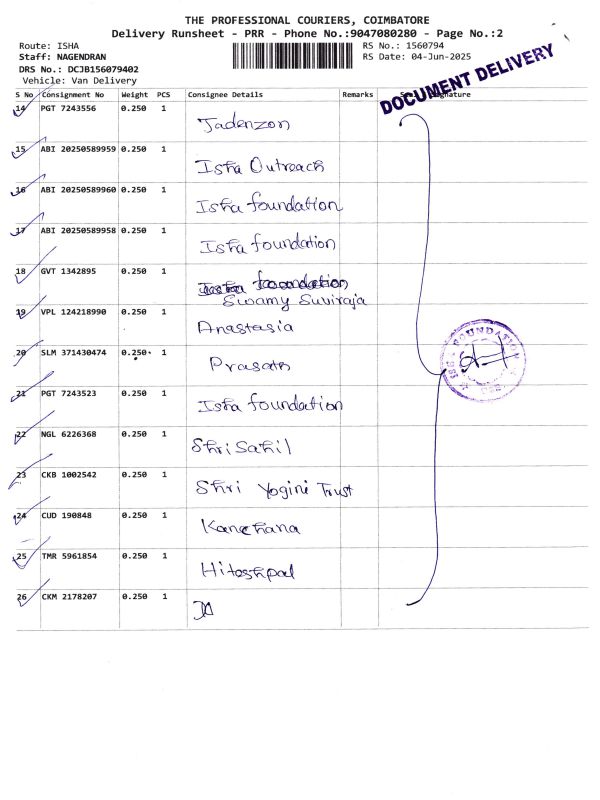 THE PROFESSIONAL COURIERS, COIMBATORE
Delivery Runsheet - PRR - Phone No.:9047080280 - Page No.:2
Route: ISHA
Staff: NAGENDRAN
DRS No.: DCJB156079402
Vehicle: Van Delivery
RS No.: 1560794
RS Date: 04-Jun-2025
DOCUMENT DELIVERY
S No Consignment No Weight PCS Consignee Details Remarks
14 PGT 7243556 0.250 1 Jadenzon
15 ABI 20250589959 0.250 1 Isha Outreach
16 ABI 20250589960 0.250 1 Isha foundation
17 ABI 20250589958 0.250 1 Isha foundation
18 GVT 1342895 0.250 1 Isha foundation
Swamy Suviraja
19 VPL 124218990 0.250 1 Anastasia
20 SLM 371430474 0.250 1 Prasath
21 PGT 7243523 0.250 1 Isha foundation
22 NGL 6226368 0.250 1 Shri Sahil
23 CKB 1002542 0.250 1 Shri Yogini Trust
24 CUD 190848 0.250 1 Kanchana
25 TMR 5961854 0.250 1 Hiteshpal
26 CKM 2178207 0.250 1
FOUNDATION